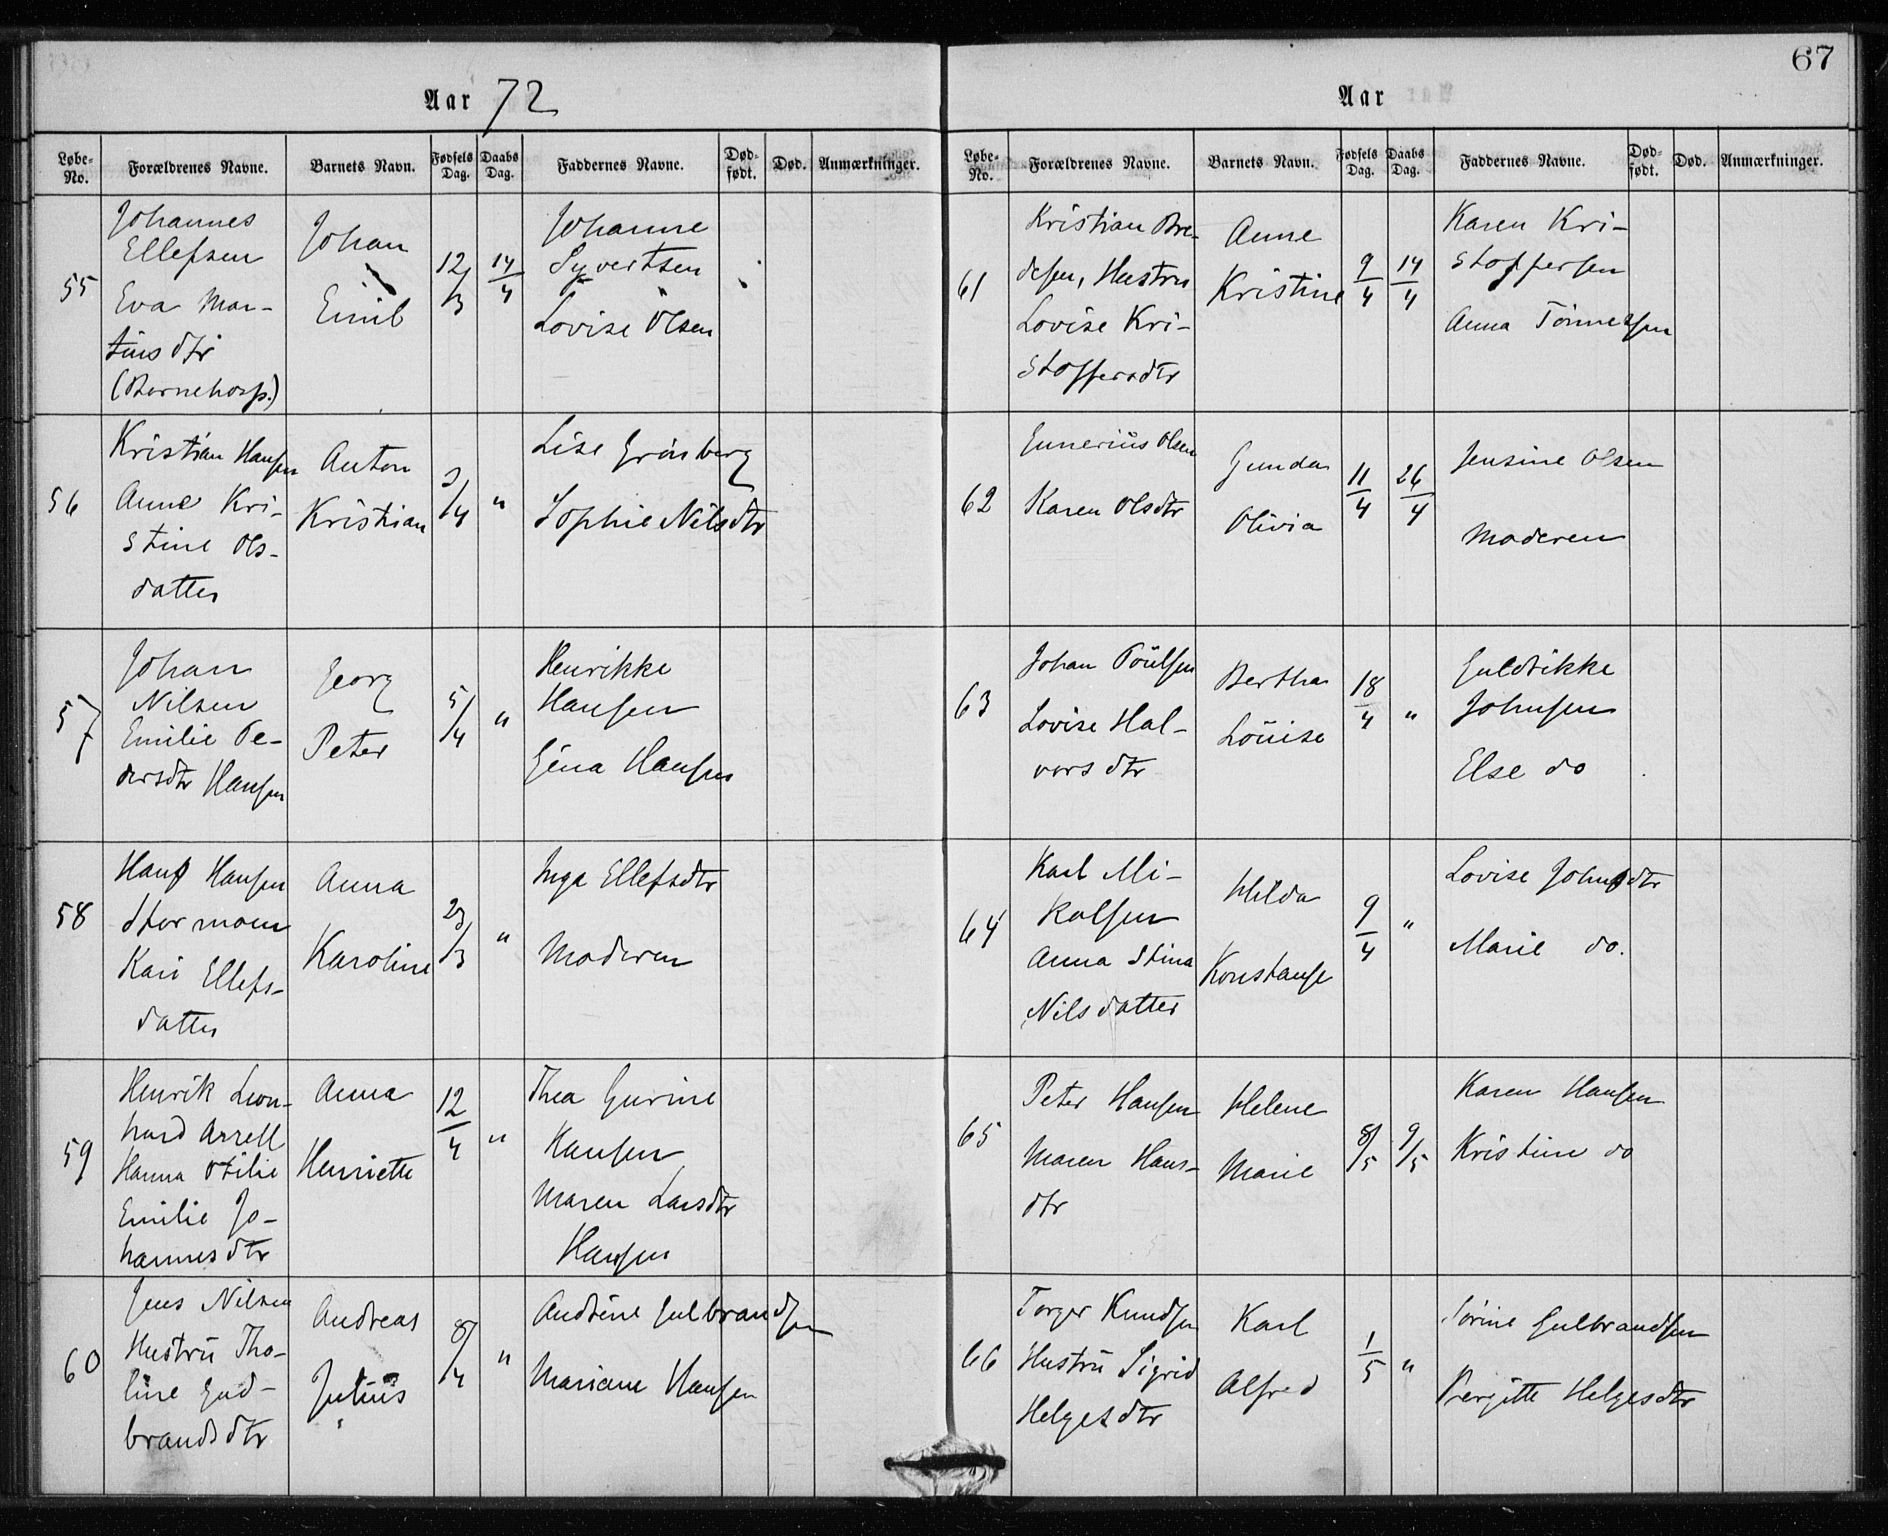 67
Aar 72
Løbe-No. Forældrenes Navne. Barnets Navn. Fødsels Dag. Daabs Dag. Faddernes Navne. Død-født. Død. Anmærkninger.
55
Johannes
Ellefsen
Eva Mar-
tinsdtr
(Barnehosp.)
Johan
Emil
12/3
14/4
Johanne
Syvertsen
Lovise Olsen
56
Kristian Hansen
Anne Kri-
stine Ols-
datter
Anton
Kristian
3/4
"
Lise Grönberg
Sophie Nilsdtr
57
Johan
Nilsen
Emilie Pe-
dersdtr Hansen
Georg
Peter
5/4
"
Henrikke
Hansen
Gina Hansen
58
Hans Hansen
Stormoen
Kari Ellefs-
datter
Anna
Karoline
23/3
"
Inga Ellefsdtr
Moderen
59
Henrik Leon-
hard Arrell
Hanna Otilie
Emilie Jo-
hannesdtr
Anna
Henriette
12/4
"
Thea Gurine
Hansen
Maren Larsdtr
Hansen
60
Jens Nilsen
Hustru Tho-
line Gud-
brandsdtr
Andreas
Julius
8/4
"
Andrine Gulbrandsen
Mariane Hansen
Aar
Løbe-No. Forældrenes Navne. Barnets Navn. Fødsels Dag. Daabs Dag. Faddernes Navne. Død-født. Død. Anmærkninger.
61
Kristian Bre-
desen, Hustru
Lovise Kri-
stoffersdtr
Anne
Kristine
9/4
14/4
Karen Kri-
stoffersen
Anna Tönnesen
62
Gunerius Olsen
Karen Olsdtr
Gunda
Olivia
11/4
26/4
Jensine Olsen
Moderen
63
Johan Poulsen
Lovise Hal-
vorsdtr
Bertha
Louise
18/4
"
Guldrikke
Johnsen
Else do
64
Karl Mi-
kalsen
Anna Stina
Nilsdatter
Hilda
Konstanse
9/4
"
Lovise Johnsdtr
Marie do.
65
Peter Hansen
Maren Hans-
dtr
Helene
Marie
8/5
9/5
Karen Hansen
Kristine do
66
Torger Knudsen
Hustru Sigrid
Helgesdtr
Karl
Alfred
1/5
"
Sörine Gulbrandsen
Bergitte Helgesdtr